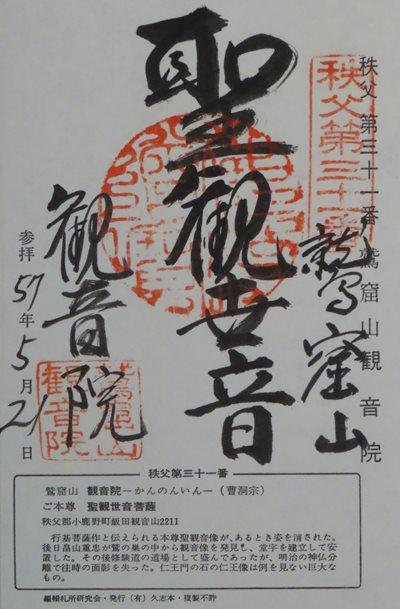 秩父第三十一番
秩父 第三十一番 鷲窟山観音院
鷲窟山
聖観世音
観音院
参拝 57年5月21日
鷲窟山
観音院
秩父第三十一番
鷲窟山 観音院―かんのんいん―(曹洞宗)
ご本尊 聖観世音菩薩
秩父郡小鹿野町飯田観音山2211
行基菩薩作と伝えられる本尊聖観音像が、あるとき姿を消された。
後日畠山重忠が鷲の巣の中から観音像を発見し、堂宇を建立して安
置した。その後修験道の道場として盛んであったが、明治の神仏分
離で往時の面影を失った。仁王門の石の仁王像は例を見ない巨大な
もの。
編輯札所研究会・発行(有)久志本・複製不許